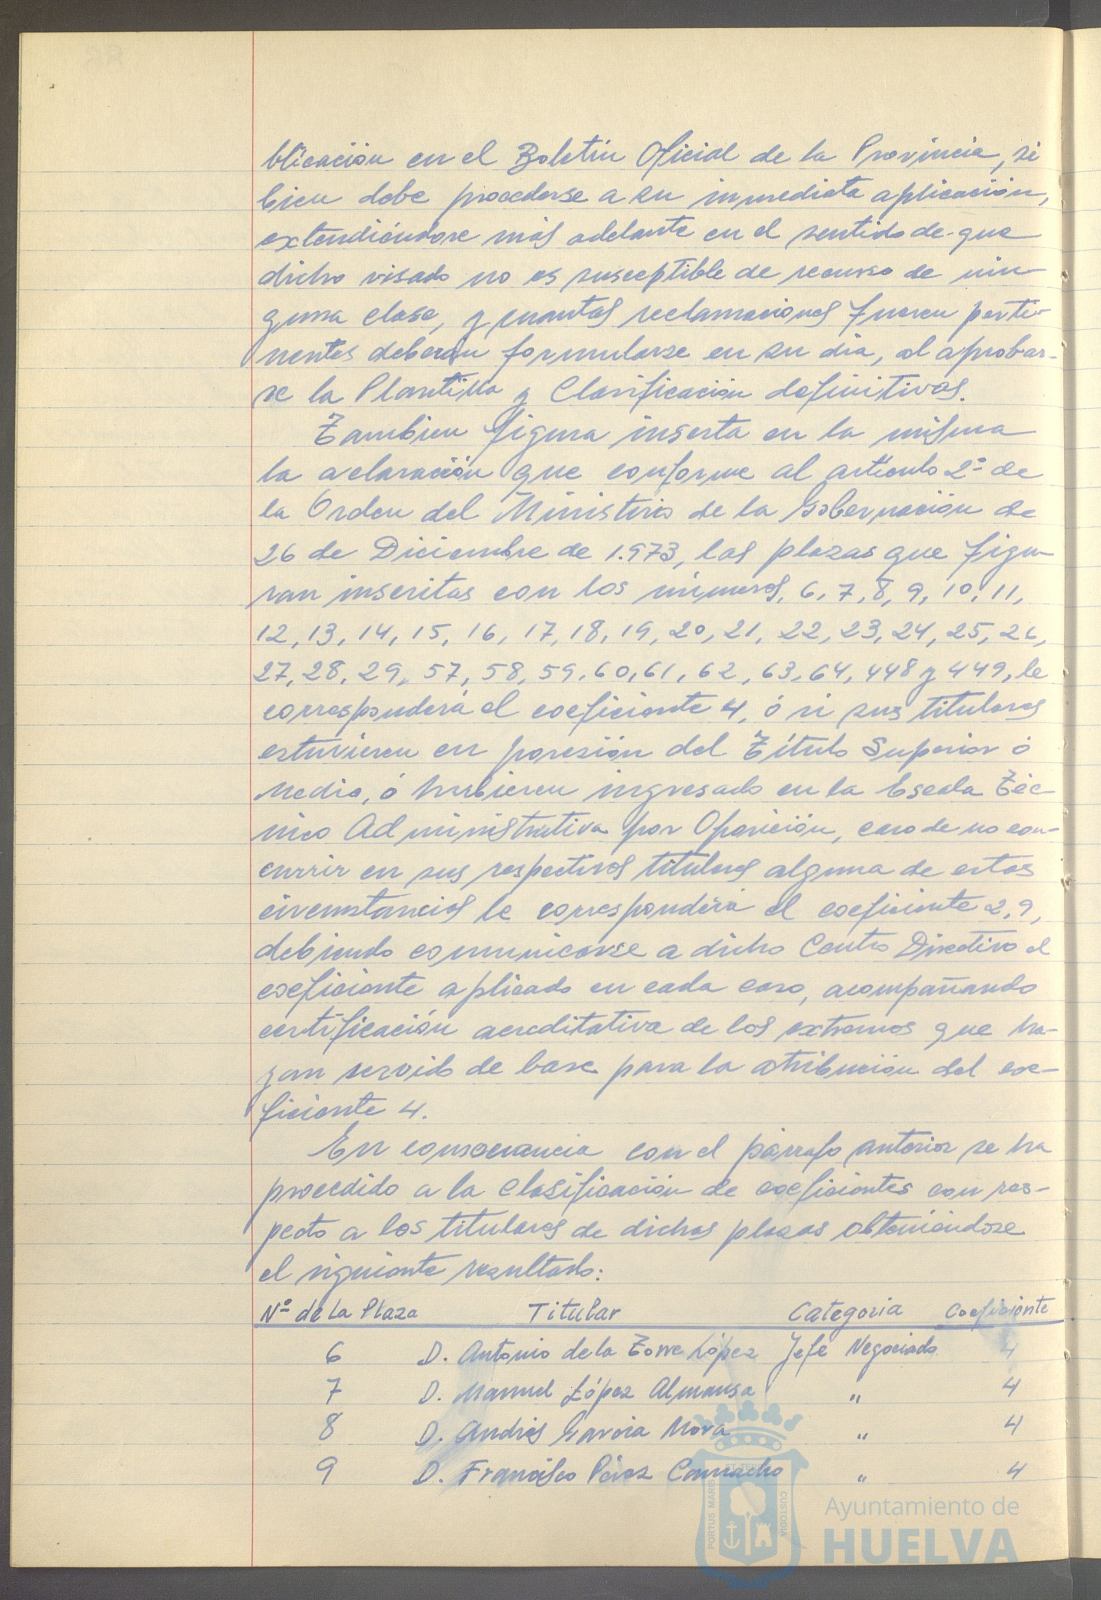 blicación en el Boletín Oficial de la Provincia, si
bien debe procederse a su inmediata aplicación,
extendiéndose más adelante en el sentido de que
dicho visado no es susceptible de recurso de nin-
guna clase, y cuantas reclamaciones fueren perti-
nentes deberán formularse en su día, al aprobar-
se la Plantilla y Clasificación definitivas.
Tambien figura inserta en la misma
la aclaración que conforme al artículo 2º de
la Orden del Ministerio de la Gobernación de
26 de Diciembre de 1.973, las plazas que figu-
ran inscritas con los números, 6, 7, 8, 9, 10, 11,
12, 13, 14, 15, 16, 17, 18, 19, 20, 21, 22, 23, 24, 25, 26,
27, 28, 29, 57, 58, 59, 60, 61, 62, 63, 64, 448 y 449, le
corresponderá el coeficiente 4, ó si sus titulares
estuvieren en posesión del Título Superior ó
Medio, ó hubieren ingresado en la Escala Téc-
nico Administrativa por Oposición, caso de no con-
currir en sus respectivos titulares alguna de estas
circunstancias le correspondería el coeficiente 2,9,
debiendo comunicarse a dicho Centro Directivo el
coeficiente aplicado en cada caso, acompañando
certificación acreditativa de los extremos que ha-
yan servido de base para la atribución del coe-
ficiente 4.
En consecuencia con el párrafo anterior se ha
procedido a la clasificación de coeficientes con res-
pecto a los titulares de dichas plazas obteniéndose
el siguiente resultado:
Nº de la Plaza Titular Categoria Coeficiente
6 D. Antonio de la Torre López Jefe Negociado 4
7 D. Manuel López Almansa " 4
8 D. Andrés García Mora " 4
9 D. Francisco Pérez Camacho " 4
PORTUS MARIS ET TERRAE CUSTODIA
Ayuntamiento de
HUELVA